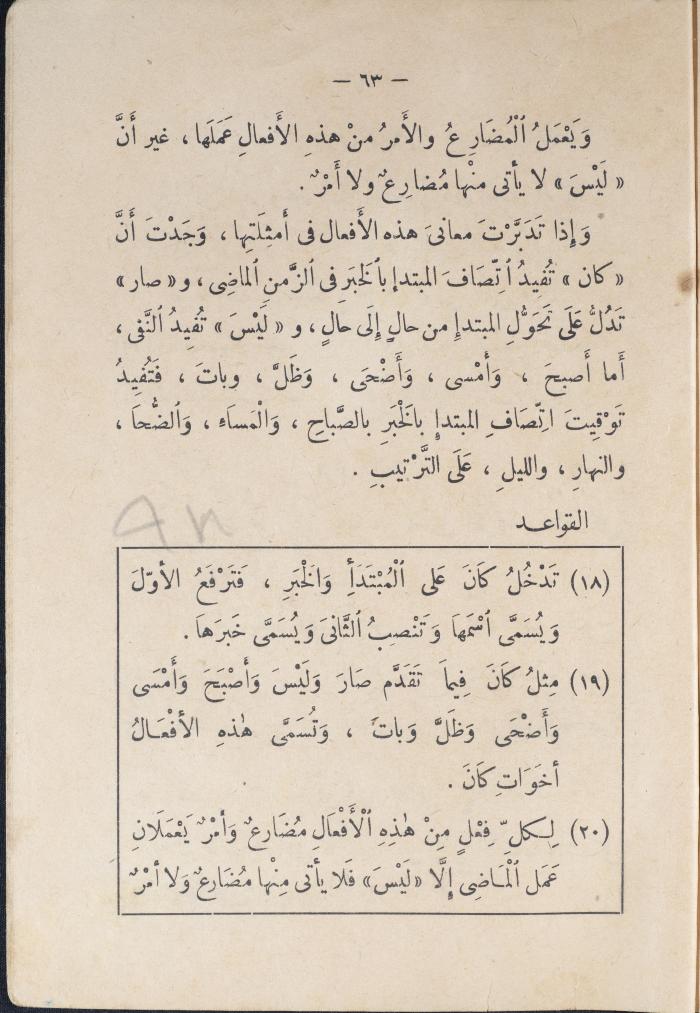 — ٦٣ —
وَيَعْمَلُ ٱلْمُضَارِعُ والأَمرُ منْ هذهِ الأَفعالِ عَمَلَها ، غير أَنَّ
« لَيْسَ » لا يأتى منْها مُضارِعٌ ولا أَمْرٌ .
وَإِذا تَدَبَّرْتَ معانىَ هذه الأَفعال فى أَمثِلَتِها ، وَجَدْتَ أَنَّ
« كان » تُفِيدُ ٱتِّصَافَ المبتدإ بٱلخَبَرِ فى ٱلزَّمنِ ٱلماضِى ، و « صار »
تَدُلُّ عَلَى تَحَوُّلِ المبتدإِ من حالٍ إِلَى حالٍ ، و « لَيْسَ » تُفِيدُ ٱلنَّفى ،
أَما أَصبحَ ، وَأَمْسى ، وَأَضْحَى ، وَظَلَّ ، وباتَ ، فَتُفِيدُ
تَوْقِيتَ اتِّصَافِ المبتدإِ بالخَبَرِ بالصَّباحِ ، وَالْمَساءِ ، وَٱلضُّحَا ،
والنهارِ ، والليلِ ، عَلَى التَّرْتيبِ .
القواعـد
(١٨) تَدْخُلُ كَانَ على ٱلْمُبْتَدَأِ وَالخَبَرِ ، فَتَرْفَعُ الأوّلَ
وَيُسَمَّى ٱسْمَهَا وَتَنْصِبُ ٱلثَّانىَ وَيُسَمَّى خَبرَهَا .
(١٩) مِثلُ كَانَ فِيمَا تَقَدَّم صَارَ وَلَيْسَ وَأَصْبَحَ وَأَمْسَى
وَأَضْحَى وَظَلَّ وَباتَ ، وَتُسَمَّى هٰذهِ الأفْعَـالُ
أخَوَاتِ كَانَ .
(٢٠) لِـكلِّ فِعْلٍ مِنْ هٰذِهِ ٱلْأَفْعَالِ مُضَارعٌ وَأمْرٌ يَعْمَلَانِ
عَمَل ٱلْمَـاضِى إِلَّا «لَيْسَ» فَلا يأتى مِنْها مُضَارعٌ وَلا أمْرٌ